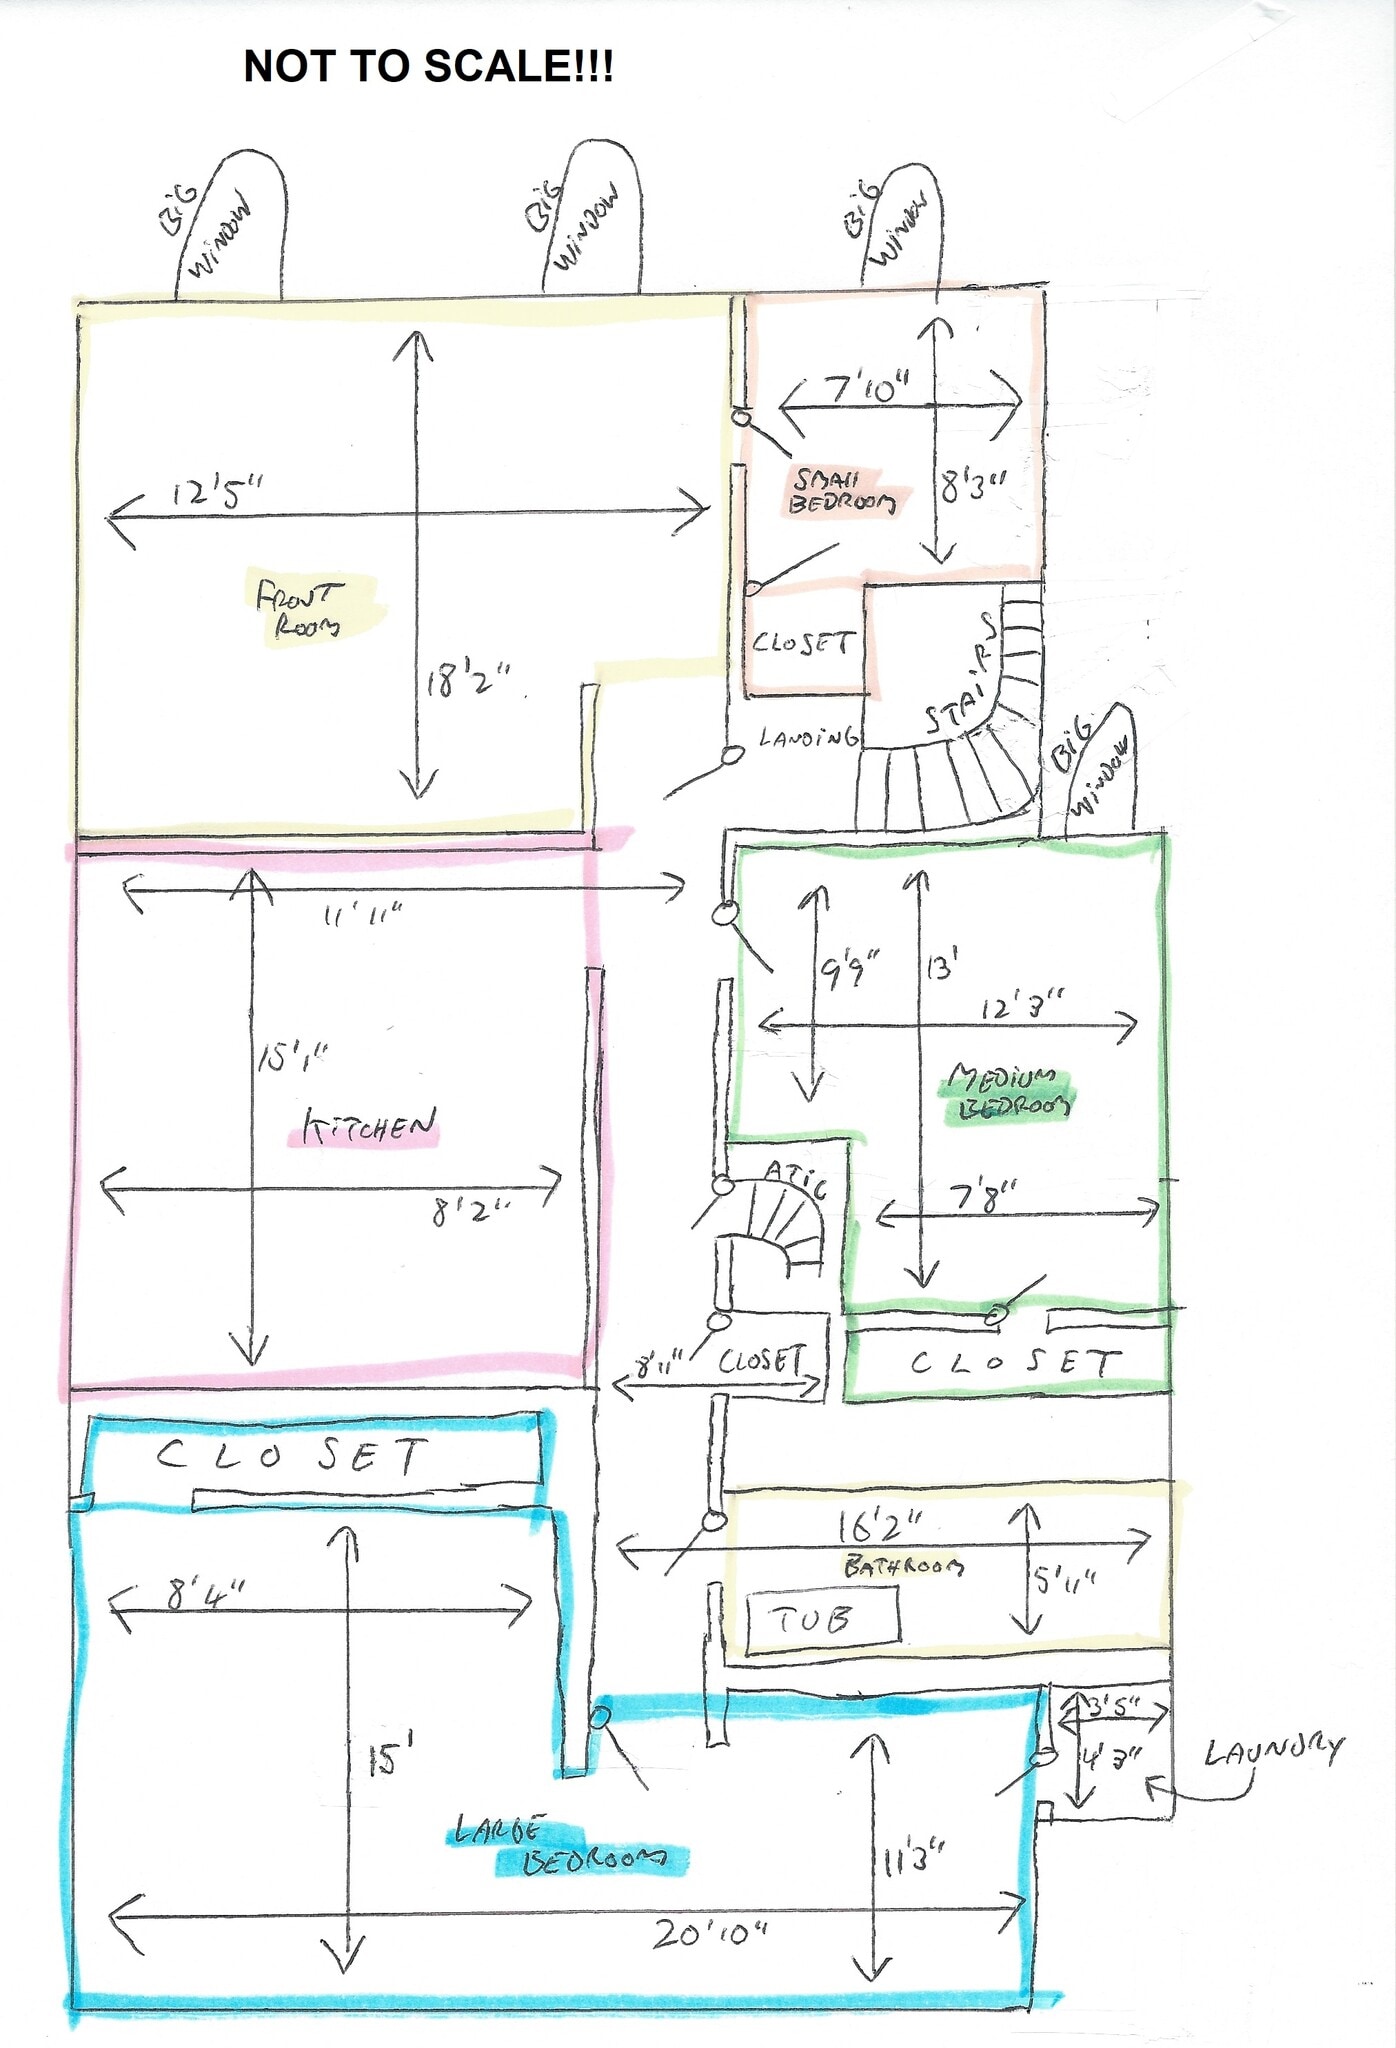 NOT TO SCALE!!!
BiG
WiNDOW
BiG
WiNDOW
BiG
WiNDOW
7'10"
SMAll
BEDROOM
8'3"
12'5"
FRONT
ROOM
18'2"
CLOSET
STAiRS
LANDiNG
BiG
WiNDOW
11'11"
9'9"
13'
12'3"
15'1"
MEDiUM
BEDROOM
KiTCHEN
ATiC
8'2"
7'8"
8'11"
CLOSET
CLOSET
CLOSET
16'2"
BATHROOM
5'11"
8'4"
TUB
3'5"
4'3"
LAUNDRY
15'
LARGE
BEDROOM
11'3"
20'10"